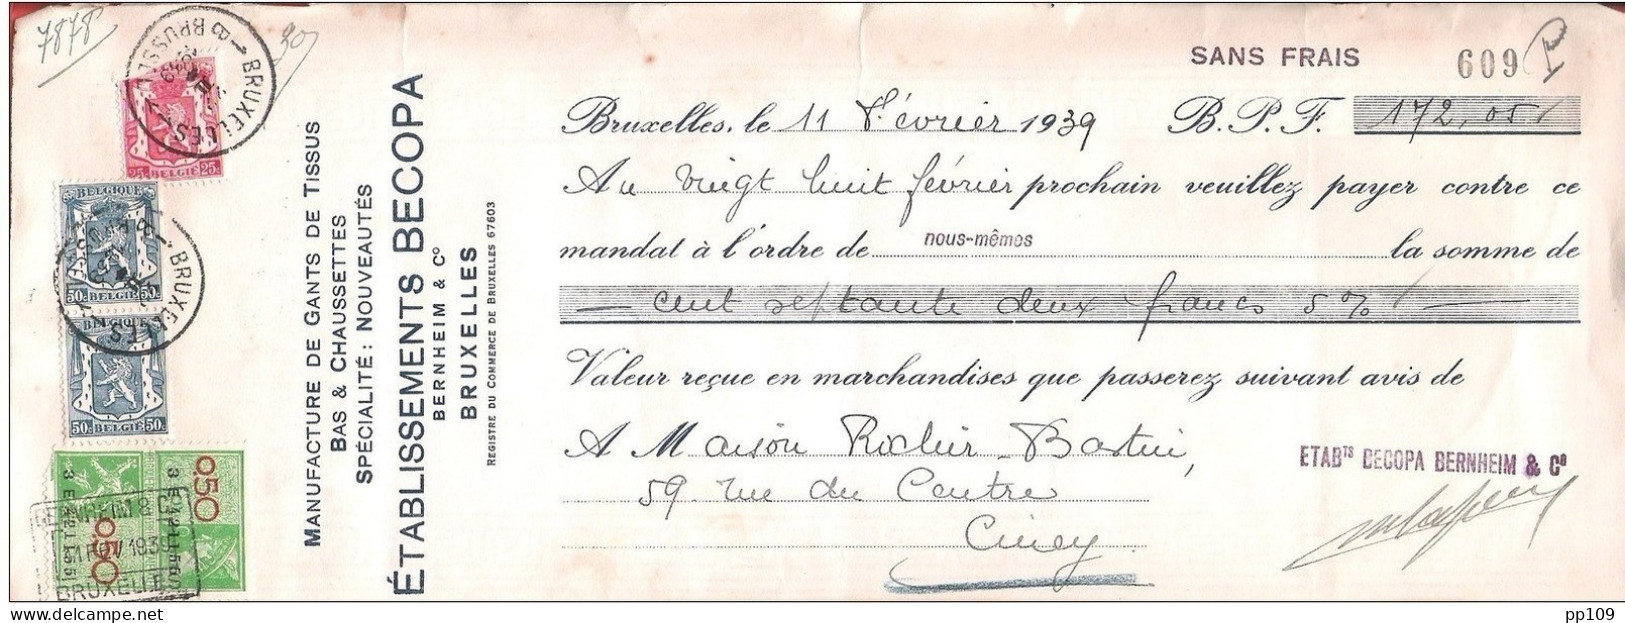 7878
SANS FRAIS
609
MANUFACTURE DE GANTS DE TISSUS
BAS & CHAUSSETTES
SPÉCIALITÉ: NOUVEAUTÉS
ÉTABLISSEMENTS BECOPA
BERNHEIM & Cº
BRUXELLES
REGISTRE DU COMMERCE DE BRUXELLES 67603
Bruxelles, le 11 Février 1939 B.P.F. 172,05
Au vingt huit février prochain veuillez payer contre ce
mandat à l'ordre de nous-mêmes la somme de
— cent septante deux francs 5 % —
Valeur reçue en marchandises que passerez suivant avis de
A Maison Rochir-Bastin,
59, rue du Centre
Ciney
ETABTS BECOPA BERNHEIM & Cº
BRUXELLES
25c BELGIË 25c
BELGIQUE
50c BELGIË 50c
BRUXELLES
BELGIQUE
50c BELGIË 50c
0,50
0,50
1939
BRUXELLES
pp109